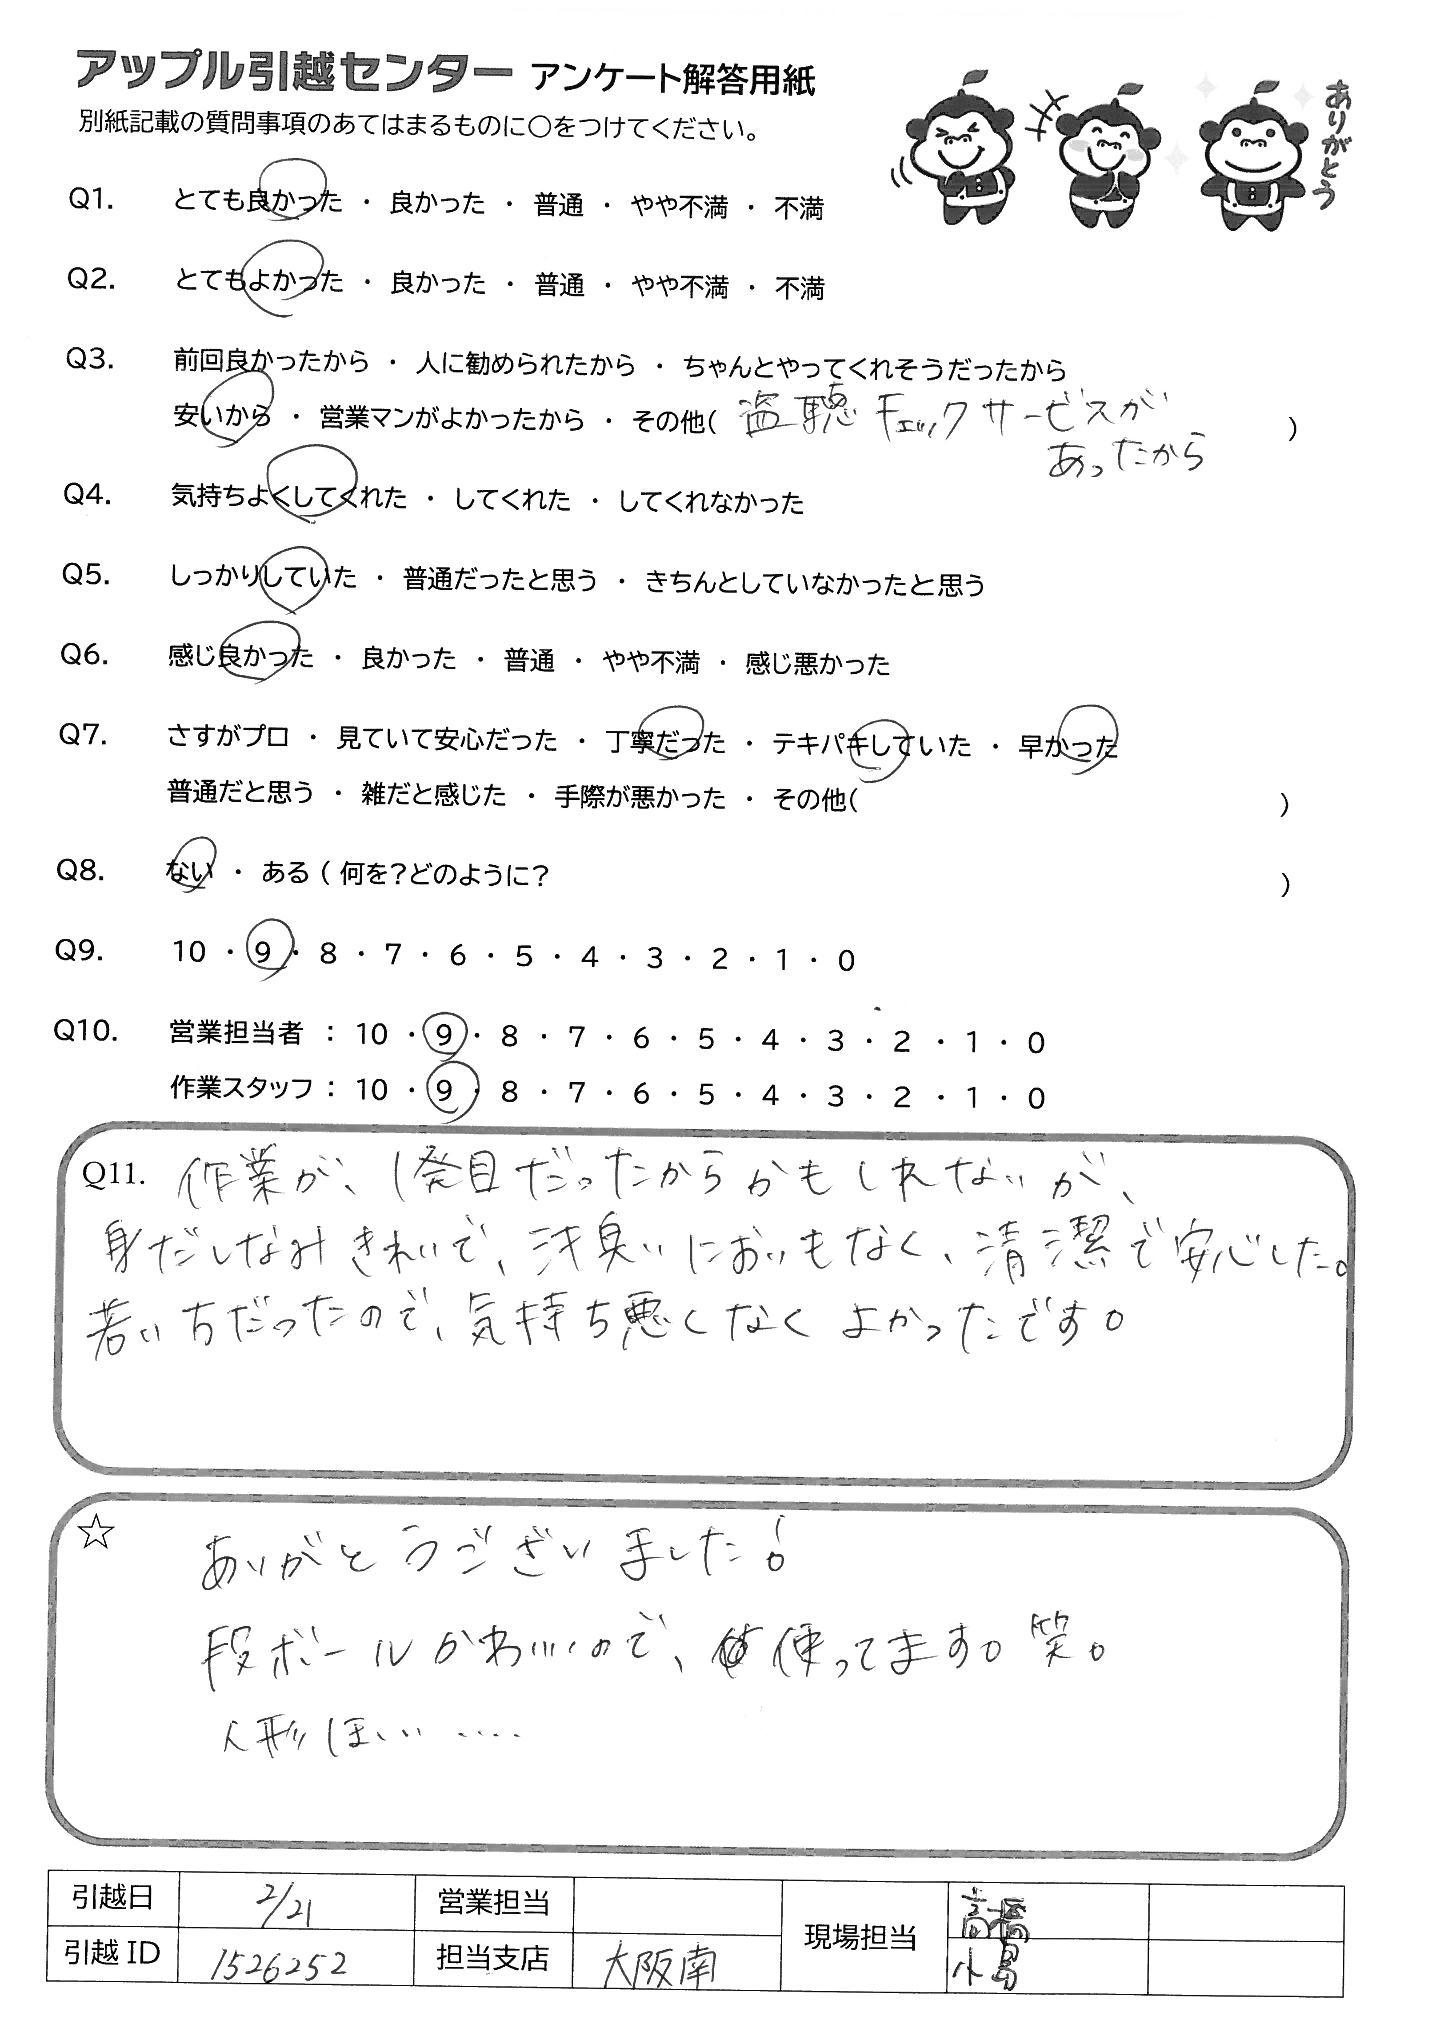 アップル引越センター アンケート解答用紙
別紙記載の質問事項のあてはまるものに○をつけてください。
ありがとう
Q1. とても良かった ・ 良かった ・ 普通 ・ やや不満 ・ 不満
Q2. とてもよかった ・ 良かった ・ 普通 ・ やや不満 ・ 不満
Q3. 前回良かったから ・ 人に勧められたから ・ ちゃんとやってくれそうだったから
安いから ・ 営業マンがよかったから ・ その他( 盗聴チェックサービスが )
あったから
Q4. 気持ちよくしてくれた ・ してくれた ・ してくれなかった
Q5. しっかりしていた ・ 普通だったと思う ・ きちんとしていなかったと思う
Q6. 感じ良かった ・ 良かった ・ 普通 ・ やや不満 ・ 感じ悪かった
Q7. さすがプロ ・ 見ていて安心だった ・ 丁寧だった ・ テキパキしていた ・ 早かった
普通だと思う ・ 雑だと感じた ・ 手際が悪かった ・ その他( )
Q8. ない ・ ある ( 何を?どのように? )
Q9. 10 ・ 9 ・ 8 ・ 7 ・ 6 ・ 5 ・ 4 ・ 3 ・ 2 ・ 1 ・ 0
Q10. 営業担当者 : 10 ・ 9 ・ 8 ・ 7 ・ 6 ・ 5 ・ 4 ・ 3 ・ 2 ・ 1 ・ 0
作業スタッフ : 10 ・ 9 ・ 8 ・ 7 ・ 6 ・ 5 ・ 4 ・ 3 ・ 2 ・ 1 ・ 0
Q11. 作業が、1発目だったからかもしれないが、
身だしなみきれいで、汗臭いにおいもなく、清潔で安心した。
若い方だったので、気持ち悪くなくよかったです。
☆ ありがとうございました!
段ボールかわいいので、使ってます。笑。
人形ほしい ‥‥
引越日 2/21 営業担当 現場担当 高橋
引越ID 1526252 担当支店 大阪南 小島